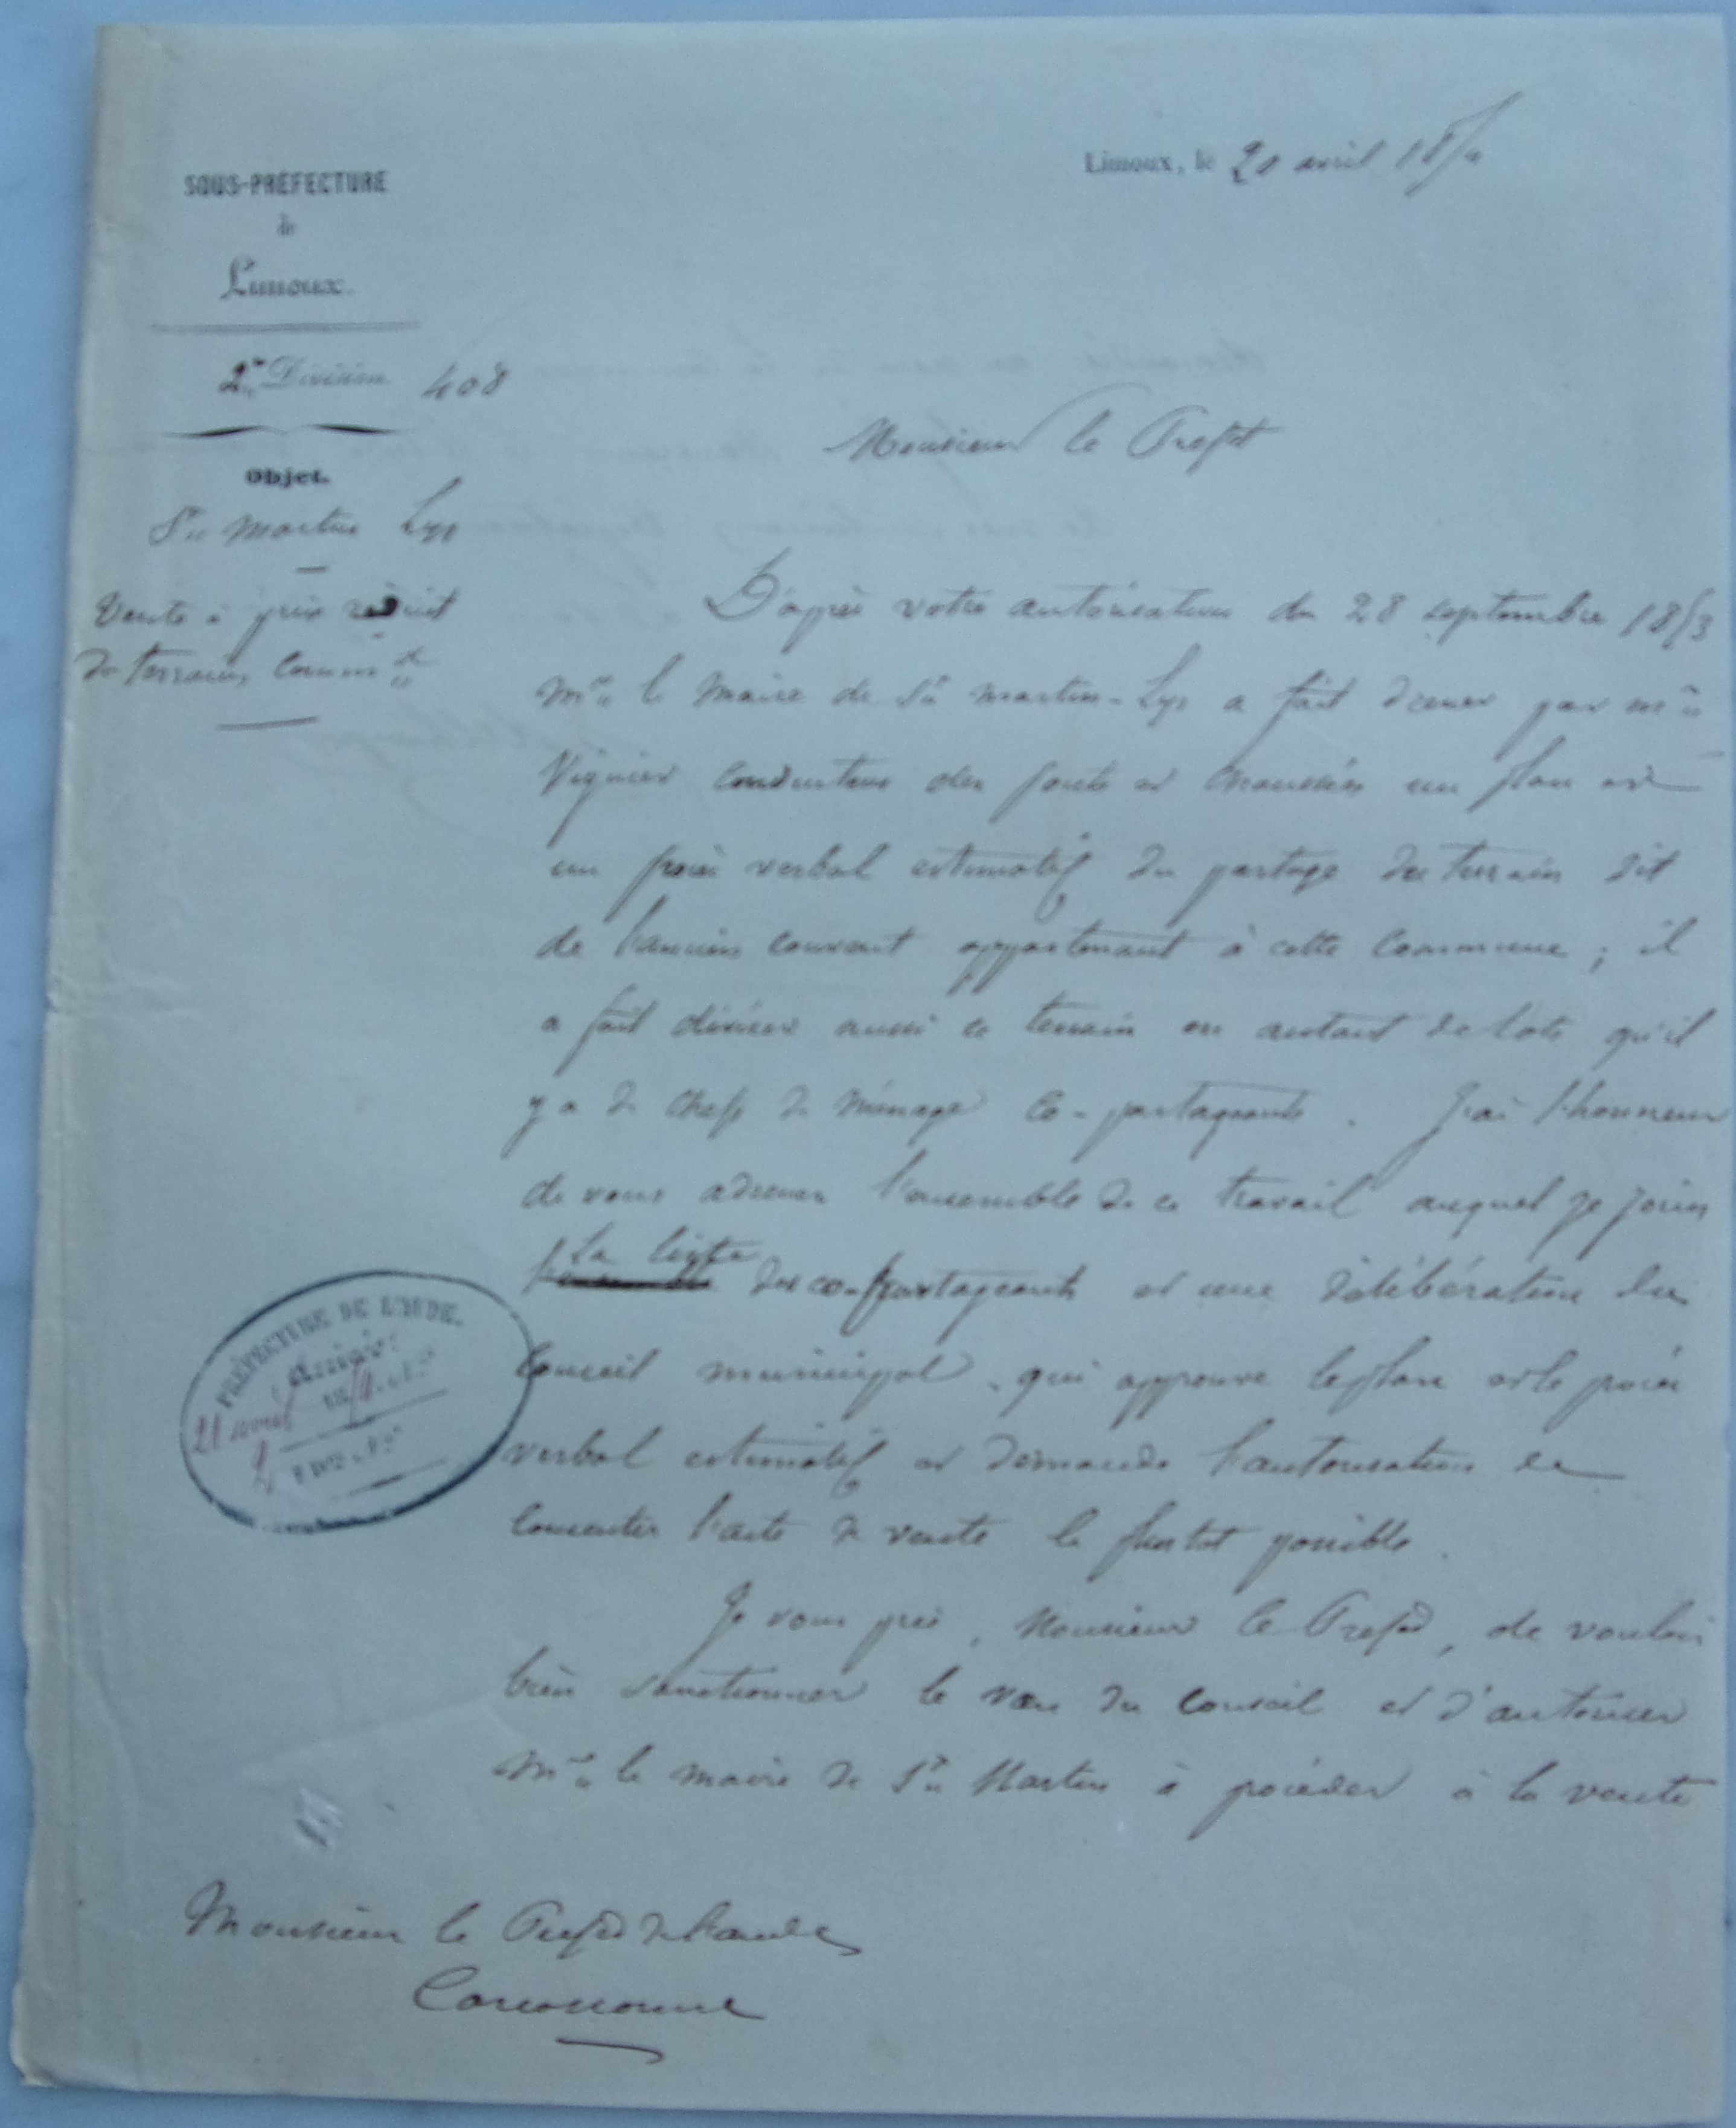 Limoux, le 20 avril 1854
SOUS-PRÉFECTURE
de
Limoux.
2me Division 408
Objet.
St Martin Lys
Vente à prix reduit
de terrains Commx
Monsieur le Prefet
D'après votre autorisation du 28 septembre 1853
Mr le Maire de St Martin-Lys a fait dresser par Mr
Viguier Conducteur des ponts et Chaussées un plan et
un procès verbal estimatif du partage du terrain dit
de l'ancien couvent appartenant à cette Commune ; il
a fait diviser aussi ce terrain en autant de lots qu'il
y a de Chefs de Ménage Co-partageants. J'ai l'honneur
de vous adresser l'ensemble de ce travail auquel je joins
la liste
des co-partageants et une délibération du
Conseil municipal, qui approuve le plan et le procès
verbal estimatif et demande l'autorisation de
Consentir l'acte de vente le plustot possible.
Je vous prie, Monsieur le Prefet, de vouloir
bien sanctionner le vœu du Conseil et d'autoriser
Mr le maire de St Martin à procéder à la vente
PRÉFECTURE DE L'AUDE.
Arrivée
21 avril 1854
2
Monsieur le Prefet de l'aude
Carcassonne